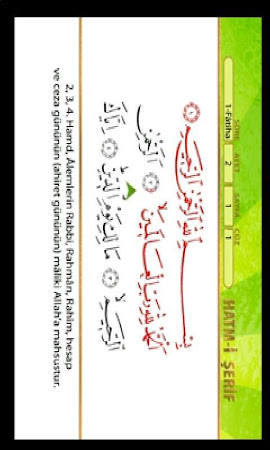 HATM-İ ŞERİF
SÛRE AYET SAYFA CÜZ
1-Fâtiha 2 1 1
بِسْمِ اللّٰهِ الرَّحْمٰنِ الرَّحِيمِ ﴿١﴾
اَلْحَمْدُ لِلّٰهِ رَبِّ الْعَالَمِينَۙ ﴿٢﴾ اَلرَّحْمٰنِ
الرَّحِيمِۙ ﴿٣﴾ مَالِكِ يَوْمِ الدِّينِۜ ﴿٤﴾ اِيَّاكَ
2, 3, 4. Hamd, Âlemlerin Rabbi, Rahmân, Rahîm, hesap
ve ceza gününün (ahiret gününün) mâliki Allah'a mahsustur.